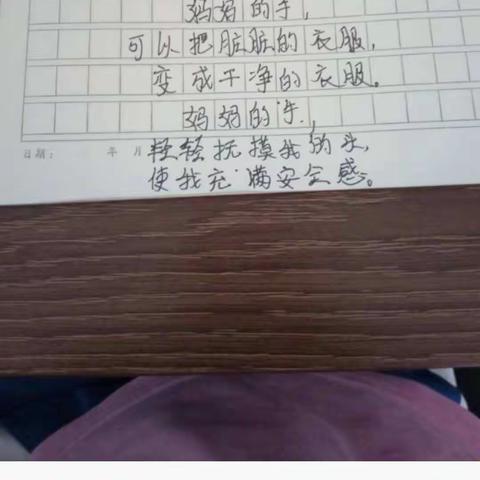 妈妈的手,
可以把脏脏的衣服,
变成干净的衣服。
妈妈的手,
日期： 年 月
轻轻抚摸我的头,
使我充满安全感。